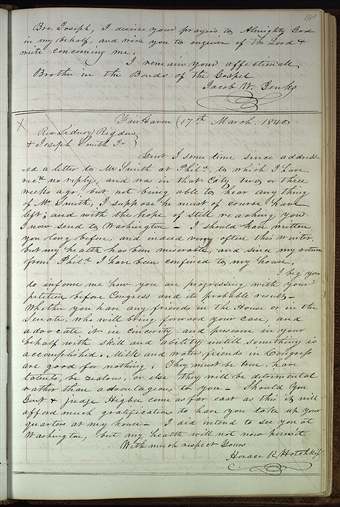 110
Bro. Joseph, I desire your prayers to Almighty God
in my behalf, and wish you to enquire of the Lord &
write concerning me.
I remain your affectionate
Brother in the Bonds of the Gospel
Jacob W. Jenks
Fair Haven (17th March, 1840
Rev Sidney Rigdon,
& Joseph Smith Jr.
Gents I some time since address-
ed a letter to Mr Smith at Phila. to which I have
recd no reply, and was in that City two or three
weeks ago, but not being able to hear any thing
of Mr Smith, I suppose he must of course have
left; and with the hope of still reaching you
I now send to Washington — I should have written
you long before, and indeed very often this winter,
but my health has been miserable and since my return
from Phila. I have been confined to my house,
I beg you
do inform me how you are progressing with your
petition before Congress and its probable issue —
Whether you have any friends in the House or in the
Senate, who will bring forward your case, and
advocate it in and persevere in your
behalf with skill and ability until something is
accomplished. Milk and water friends in Congress
are good for nothing. They must be true, have
talents, be zealous, or else they will be detrimental
rather than advantageous to you — Should you
Gent & judge Higbee come as far east as this it will
afford much gratification to have you take up your
quarters at my house — I did intend to see you at
Washington, but my health will not now permit
With much respect Yours
Horace R. Hotchkiss